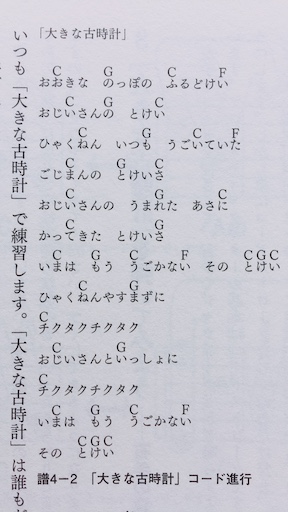 「大きな古時計」
C G C F
おおきな のっぽの ふるどけい
C G C
おじいさんの とけい
C G C F
ひゃくねん いつも うごいていた
C G C
ごじまんの とけいさ
C G C
おじいさんの うまれた あさに
C G
かってきた とけいさ
C G C F C G C
いまは もう うごかない その とけい
C G
ひゃくねんやすまずに
C
チクタクチクタク
C G
おじいさんといっしょに
C
チクタクチクタク
C G C F
いまは もう うごかない
C G C
その とけい
譜4−2 「大きな古時計」コード進行
いつも「大きな古時計」で練習します。「大きな古時計」は誰もが